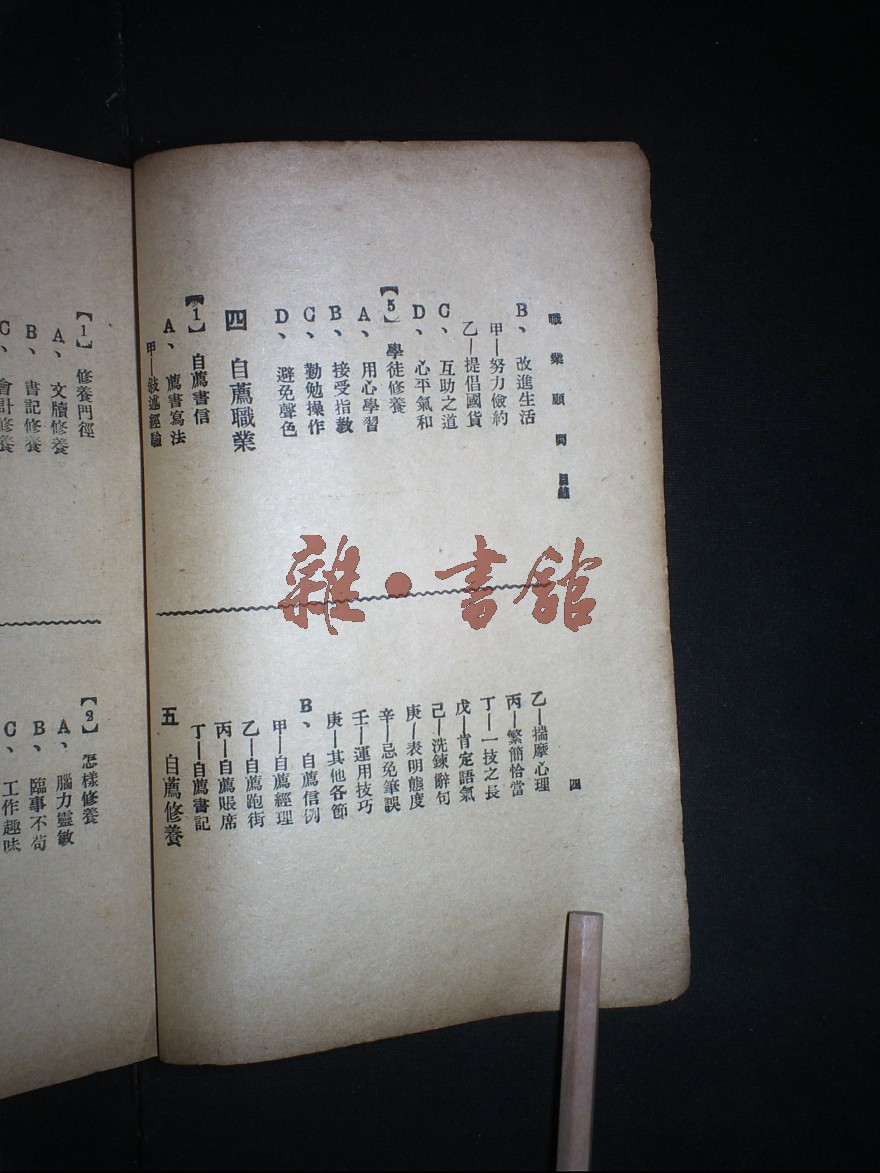 職業顧問 目錄
四
B、改進生活
甲—努力儉約
乙—提倡國貨
C、互助之道
D、心平氣和
【5】學徒修養
A、用心學習
B、接受指教
C、勤勉操作
D、避免聲色
四 自薦職業
【1】自薦書信
A、薦書寫法
甲—敍述經驗
乙—揣摩心理
丙—繁簡恰當
丁—一技之長
戊—肯定語氣
己—洗鍊辭句
庚—表明態度
辛—忌免筆誤
壬—運用技巧
庚—其他各節
B、自薦信例
甲—自薦經理
乙—自薦跑街
丙—自薦賬席
丁—自薦書記
五 自薦修養
【1】修養門徑
A、文牘修養
B、書記修養
C、會計修養
【2】怎樣修養
A、腦力靈敏
B、臨事不苟
C、工作趣味
雜·書館